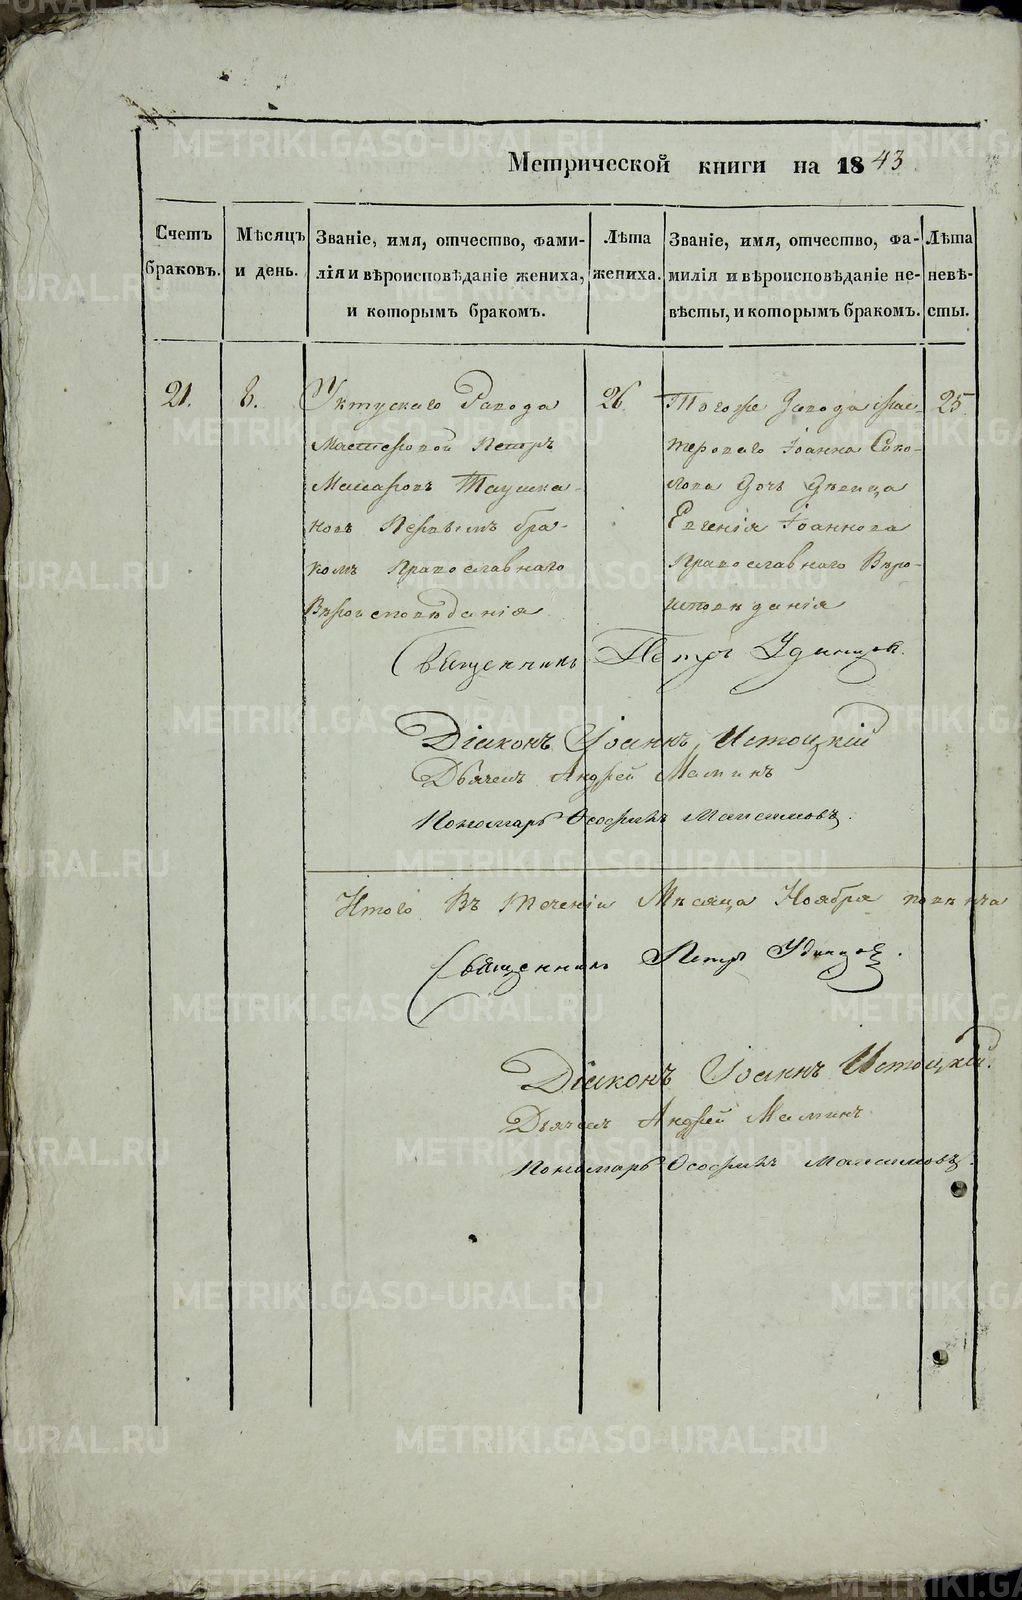 Метрической книги на 1843
Счетъ браковъ.
Мѣсяцъ и день.
Званіе, имя, отчество, фами-
лія и вѣроисповѣданіе жениха,
и которымъ бракомъ.
Лѣта
жениха.
Званіе, имя, отчество, фа-
милія и вѣроисповѣданіе не-
вѣсты, и которымъ бракомъ.
Лѣта
невѣ-
сты.
21.
8.
Уктускаго Завода
Мастеровой Петръ
Макаровъ Таушка-
новъ Первымъ бра-
комъ Православнаго
Вѣроисповѣданія
26.
Тогоже Завода Мас-
тероваго Іоанна Соко-
лова Дочь Дѣвица
Евгенія Іоаннова
Православнаго Вѣро-
исповѣданія
25
Священникъ Петръ Удинцов.
Діаконъ Іоаннъ Истоцкій
Дьячекъ Андрей Маминъ
Пономарь Ѳеофилъ Максимовъ.
Итого Въ теченіи Мѣсяца Ноября повѣнча
Священникъ Петръ Удинцов.
Діаконъ Іоаннъ Истоцкій.
Дьячекъ Андрей Маминъ
Пономарь Ѳеофилъ Максимовъ.
METRIKI.GASO-URAL.RU